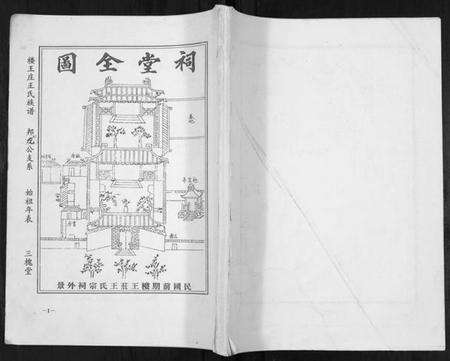 祠堂全圖
楼王庄王氏族谱 邦龙公支系 始祖年表 三槐堂
民國前期樓王莊王氏宗祠外景
-1-